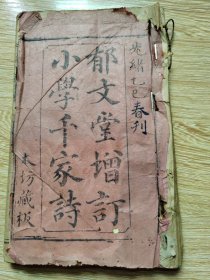 光緒乙巳春刊
郁文堂增訂
小學千家詩
本坊藏板